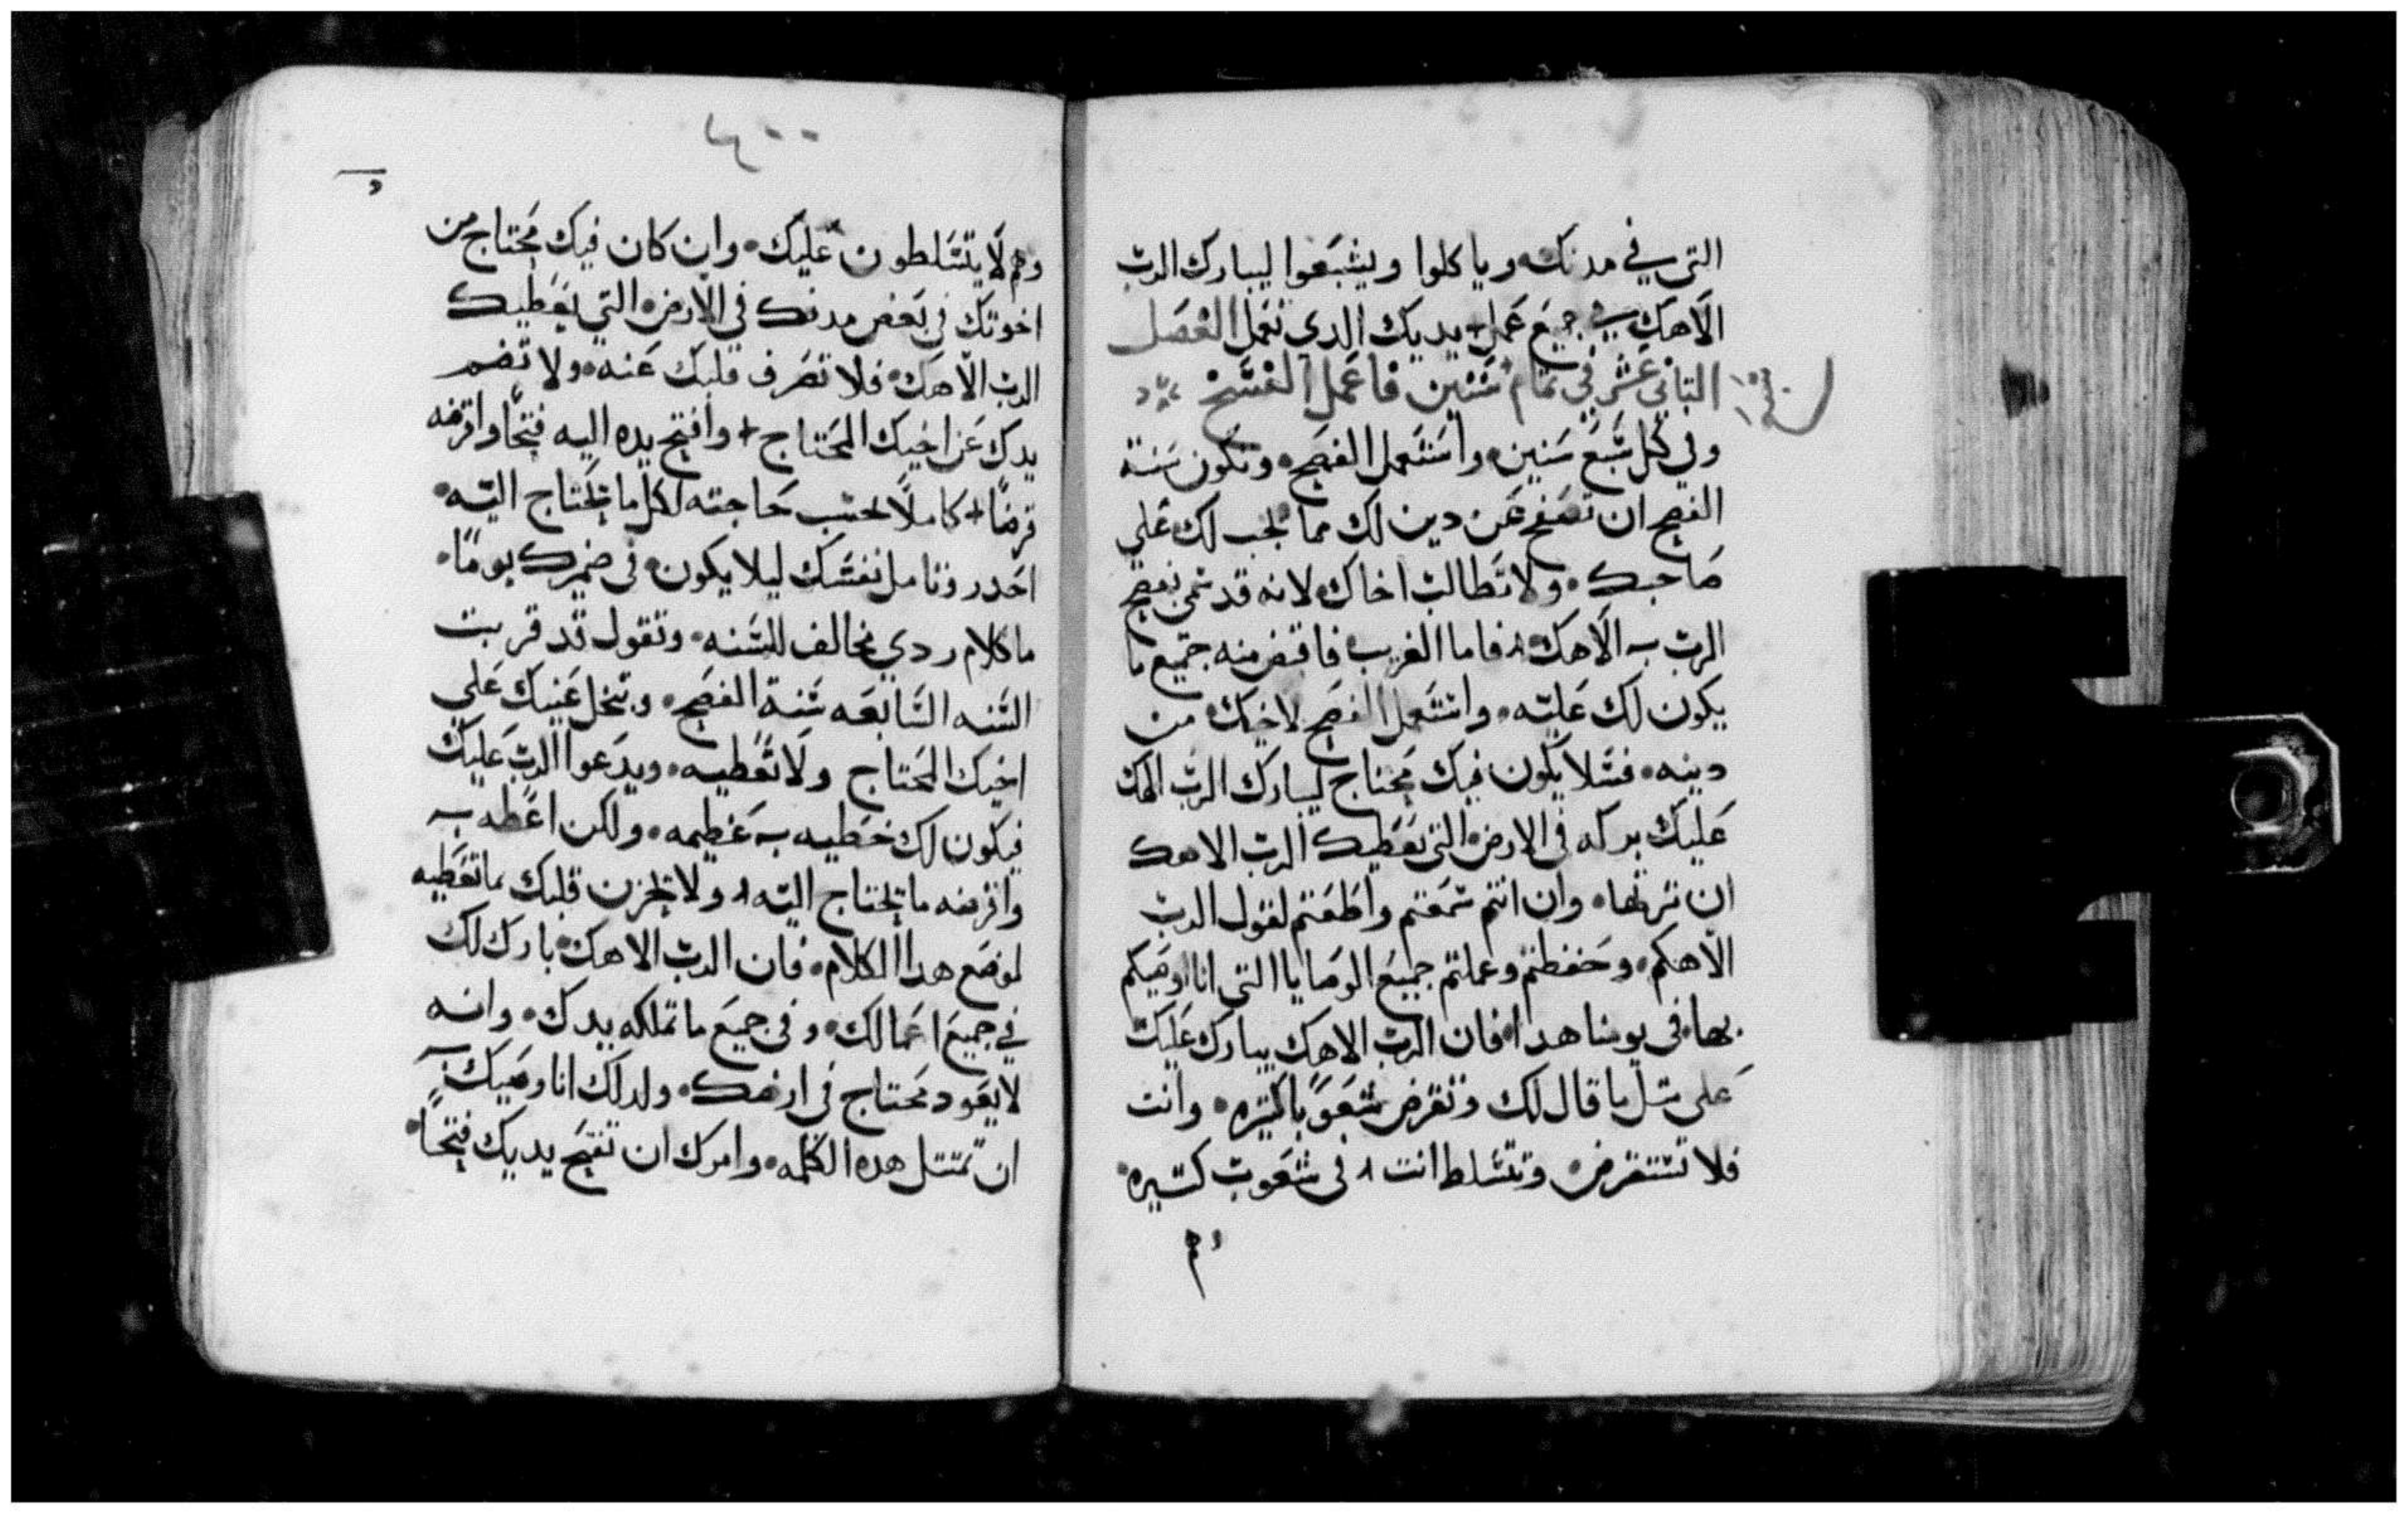 التي في مدنك وياكلوا ويشبعوا ليبارك الرب
الاهك في جميع عمل يديك الدي تعمل الفصل
التاني عشر في تمام سنين فاعمل الفسح
وفي كل سبع سنين واستعمل الفصح وتكون سنة
الفصح ان تصفح عن دين لك مما يجب لك علي
صاحبك ولا تطالب اخاك لانه قد سمى فصح
الرب الاهك فاما الغريب فاقبض منه جميع ما
يكون لك عليه واستعمل الفصح لاخيك من
دينه فتلا يكون فيك محتاج ليبارك الرب الهك
عليك بركه في الارض التي يعطيك الرب الاهك
ان ترثها وان انتم سمعتم واطعتم لقول الرب
الاهكم وحفظتم وعملتم جميع الوصايا التي انا اوصيكم
بها في يومنا هدا فان الرب الاهك يبارك عليك
على متل ما قال لك وتقرض شعوبا كتيره وانت
فلا تستقرض وتتسلط انت في شعوب كتيره
وهم
٤٠٠
وهم لا يتسلطون عليك وان كان فيك محتاج من
اخوتك في بعض مدنك في الارض التي يعطيك
الرب الاهك فلا تصرف قلبك عنه ولا تضم
يدك عن اخيك المحتاج وافتح يده اليه فتحا واقرضه
قرضا كاملا بحسب حاجته لكل ما يحتاج اليه
احدر وتامل نفسك ليلا يكون في ضميرك يوما
ما كلام ردي مخالف للسنه وتقول قد قربت
السنه السابعه سنة الفصح وتبخل عينيك علي
اخيك المحتاج ولا تعطيه ويدعوا الرب عليك
فيكون لك خطيه به عظيمه ولكن اعطه
واقرضه ما يحتاج اليه ولا يحزن قلبك بما تعطيه
لموضع هدا الكلام فان الرب الاهك بارك لك
في جميع اعمالك وفي جميع ما تملكه يدك وانه
لا يعود محتاج في ارضك ولدلك انا اوصيك
ان تمتتل هده الكلمه وامرك ان تفتح يديك فتحا